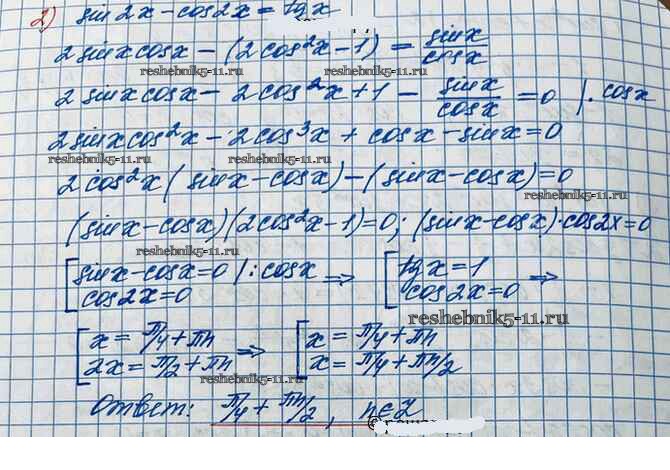 2) sin 2x - cos 2x = tg x
2 sin x cos x - (2 cos²x - 1) = sin x / cos x
reshebnik5-11.ru
2 sin x cos x - 2 cos²x + 1 - sin x / cos x = 0 | · cos x
reshebnik5-11.ru
2 sin x cos²x - 2 cos³x + cos x - sin x = 0
reshebnik5-11.ru reshebnik5-11.ru
2 cos²x (sin x - cos x) - (sin x - cos x) = 0
(sin x - cos x)(2 cos²x - 1) = 0; (sin x - cos x) · cos 2x = 0
reshebnik5-11.ru
[ sin x - cos x = 0 | : cos x ⇒ [ tg x = 1 ⇒
cos 2x = 0 cos 2x = 0
reshebnik5-11.ru
[ x = π/4 + πn ⇒ [ x = π/4 + πn
2x = π/2 + πn x = π/4 + πn/2
reshebnik5-11.ru
Ответ: π/4 + πn/2, n∈Z